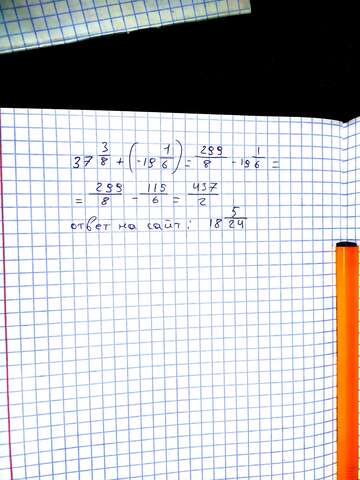 37 3/8 + (-19 1/6) = 299/8 - 19 1/6 =
= 299/8 - 115/6 = 437/2
ответ на сайт: 18 5/24